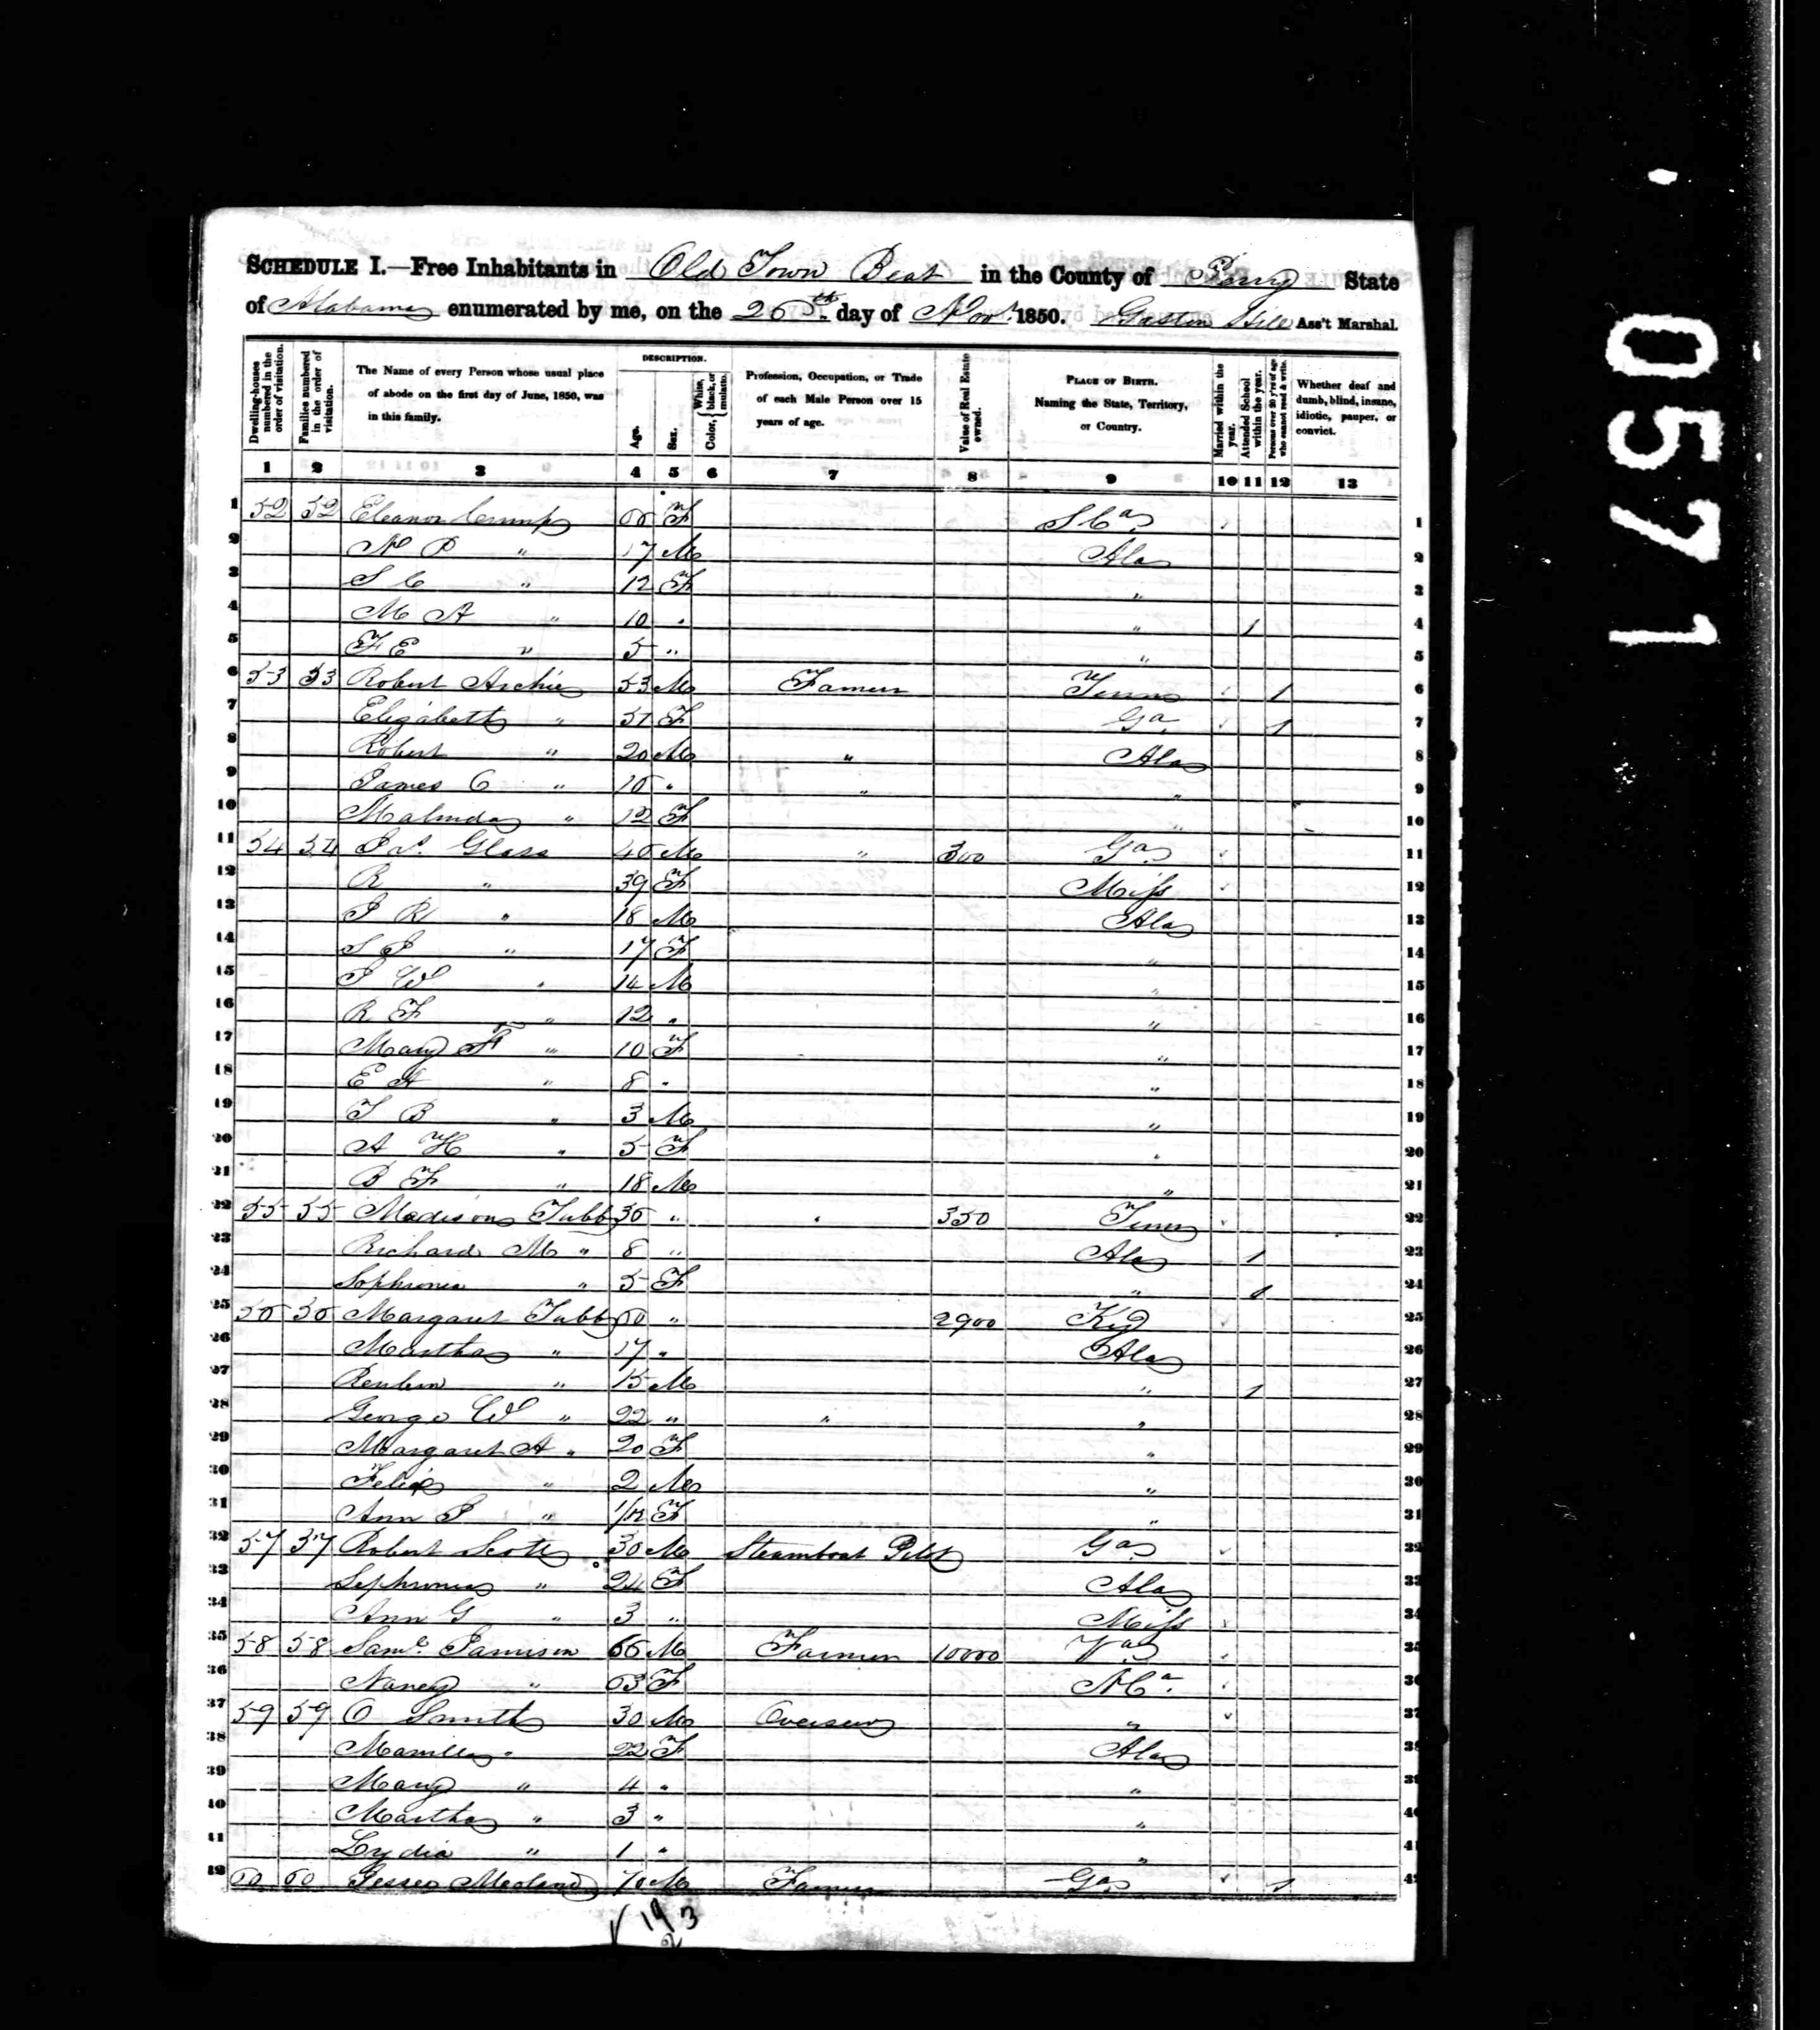 SCHEDULE I.—Free Inhabitants in Old Town Beat in the County of Perry State
of Alabama enumerated by me, on the 26th day of Nov. 1850. Gaston Ass't Marshal.
Dwelling-houses numbered in the order of visitation.
Families numbered in the order of visitation.
The Name of every Person whose usual place of abode on the first day of June, 1850, was in this family.
DESCRIPTION.
Age.
Sex.
Color, { White, black, or mulatto.
Profession, Occupation, or Trade of each Male Person over 15 years of age.
Value of Real Estate owned.
PLACE OF BIRTH. Naming the State, Territory, or Country.
Married within the year.
Attended School within the year.
Persons over 20 y'rs of age who cannot read & write.
Whether deaf and dumb, blind, insane, idiotic, pauper, or convict.
1 2 3 4 5 6 7 8 9 10 11 12 13
1 52 52 Eleanor Crump F S Ca 1
2 " 17 M Ala 2
3 S C " 12 F " 3
4 M A " 10 " " 1 4
5 F E " 5 " " 5
6 53 53 Robert Archie 53 M Farmer Tenn 1 6
7 Elizabeth " 51 F Ga 1 7
8 Robert " 20 M " Ala 8
9 James C " 16 " " " 9
10 Malinda " 12 F " 10
11 54 54 Glass 46 M " 300 Ga 11
12 R " 39 F Miss 12
13 J R " 18 M Ala 13
14 S J " 17 F " 14
15 J W " 14 M " 15
16 R F " 12 " " 16
17 Mary " 10 F " 17
18 E A " 8 " " 18
19 T B " 3 M " 19
20 A H " 5 F " 20
21 B F " 18 M " 21
22 55 55 Madison Tubb 36 " " 350 Tenn 22
23 Richard M " 8 " Ala 1 23
24 Sophronia " 5 F " 1 24
25 56 56 Margaret Tubb 60 " 2900 Ky 25
26 Martha " 17 " Ala 26
27 Reuben " 15 M " 1 27
28 George W " 22 " " " 28
29 Margaret A " 20 F " 29
30 Felix " 2 M " 30
31 Ann P " 1/12 F " 31
32 57 57 Robert Scott 30 M Steamboat Pilot Ga 32
33 Sophronia " 24 F Ala 33
34 Ann G " 3 " Miss 34
35 58 58 Saml. Jamison 66 M Farmer 10000 Va 35
36 Nancy " 63 F N Ca 36
37 59 59 O Smith 30 M Overseer " 37
38 Manilla " 22 F Ala 38
39 Mary " 4 " " 39
40 Martha " 3 " " 40
41 Lydia " 1 " " 41
42 60 60 Jesse 70 M Farmer Ga 1 42
0571